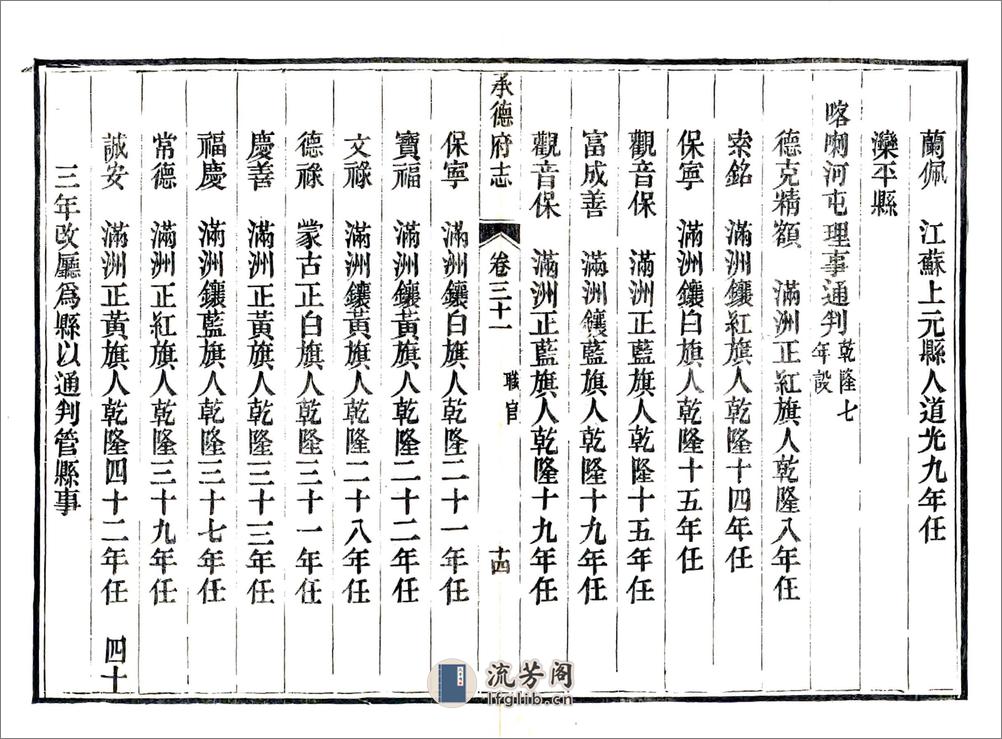 蘭佩　江蘇上元縣人道光九年任
灤平縣
喀喇河屯理事通判乾隆七
年設
德克精額　滿洲正紅旗人乾隆八年任
索銘　滿洲鑲紅旗人乾隆十四年任
保寧　滿洲鑲白旗人乾隆十五年任
觀音保　滿洲正藍旗人乾隆十五年任
富成善　滿洲鑲藍旗人乾隆十九年任
觀音保　滿洲正藍旗人乾隆十九年任
承德府志　卷三十一　職官　十四
保寧　滿洲鑲白旗人乾隆二十一年任
寶福　滿洲鑲黃旗人乾隆二十二年任
文祿　滿洲鑲黃旗人乾隆二十八年任
德祿　蒙古正白旗人乾隆三十一年任
慶善　滿洲正黃旗人乾隆三十三年任
福慶　滿洲鑲藍旗人乾隆三十七年任
常德　滿洲正紅旗人乾隆三十九年任
誠安　滿洲正黃旗人乾隆四十二年任　四十
三年改廳爲縣以通判管縣事
流芳阁
lfglib.cn